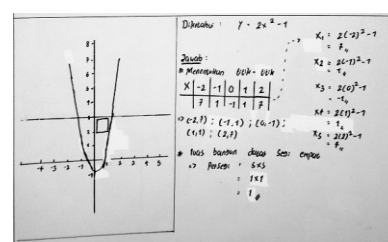 Diketahui : y = 2x² - 1
Jawab :
* Menentukan titik - titik
X | -2 | -1 | 0 | 1 | 2
7 | 1 | -1 | 1 | 7
=> (-2,7) ; (-1,1) ; (0,-1) ;
(1,1) ; (2,7)
* luas bangun datar segi empat
=> Persegi = s x s
= 1 x 1
= 1
X₁ = 2(-2)² - 1
= 7
X₂ = 2(-1)² - 1
= 1
X₃ = 2(0)² - 1
= -1
X₄ = 2(1)² - 1
= 1
X₅ = 2(2)² - 1
= 7